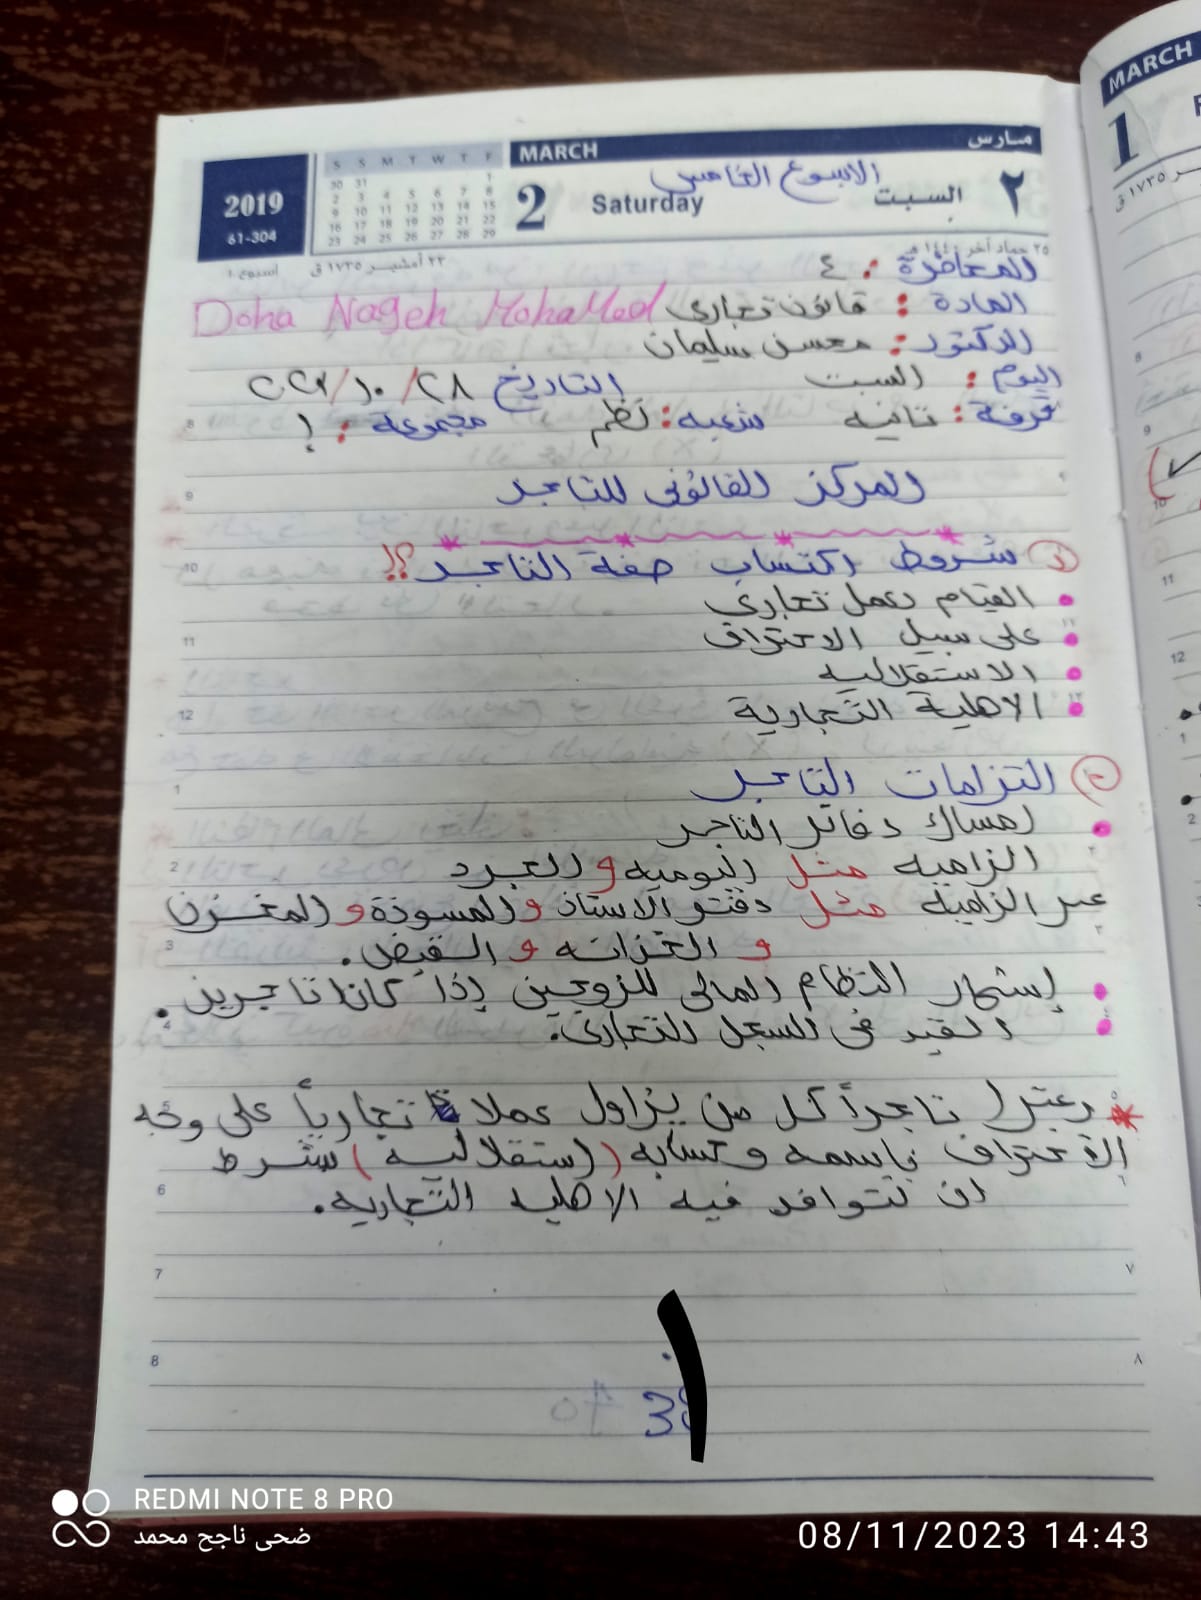 MARCH مارس
2019
61-304
S S M T W T F
30 31 1
2 3 4 5 6 7 8
9 10 11 12 13 14 15
16 17 18 19 20 21 22
23 24 25 26 27 28 29
الاسبوع الخامس
2 Saturday السبت ٢
٢٥ جماد آخر ١٤٤٠ هـ ٢٣ أمشير ١٧٣٥ ق أسبوع ١٠
المحاضرة : ٤
المادة : قانون تجارى Doha Nageh MohaMed
الدكتور : محسن سليمان
اليوم : السبت التاريخ ٢٨/١٠/
فرقة : تانيه شعبه : نظم مجموعة : ١
المركز القانونى للتاجر
١ شروط اكتساب صفة التاجر ؟!
• القيام بعمل تجارى
• على سبيل الاحتراف
• الاستقلاليه
• الاهلية التجارية
٢ التزامات التاجر
• امساك دفاتر التاجر
الزاميه مثل اليوميه و الجرد
غير الزامية مثل دفتر الاستاذ و المسودة و المخزن
و الخزانه و القبض.
• إشهار النظام المالى للزوجين إذا كانا تاجرين.
• القيد فى السجل التجارى.
* يعتبر تاجراً كل من يزاول عملا تجارياً على وجه
الاحتراف باسمه وحسابه (استقلاليه) شرط
ان تتوافر فيه الاهليه التجاريه.
١
38
MARCH
1
REDMI NOTE 8 PRO
ضحى ناجح محمد
08/11/2023 14:43